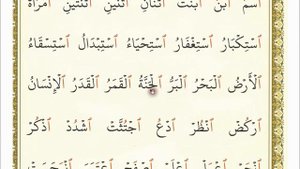 اسْمٌ ابْنٌ ابْنَتَ اثْنَانِ اثْنَيْنِ اثْنَتَيْنِ امْرَأَةٌ
اسْتِكْبَارٌ اسْتِغْفَارٌ اسْتِحْيَاءٌ اسْتِبْدَالٌ اسْتِسْقَاءٌ
الْأَرْضُ الْبَحْرُ الْبَرُّ الْجَنَّةُ الْقَمَرُ الْقَدَرُ الْإِنْسَانُ
ارْكُضْ انْظُرْ ادْعُ اجْتُثَّتْ اشْدُدْ اذْكُرْ